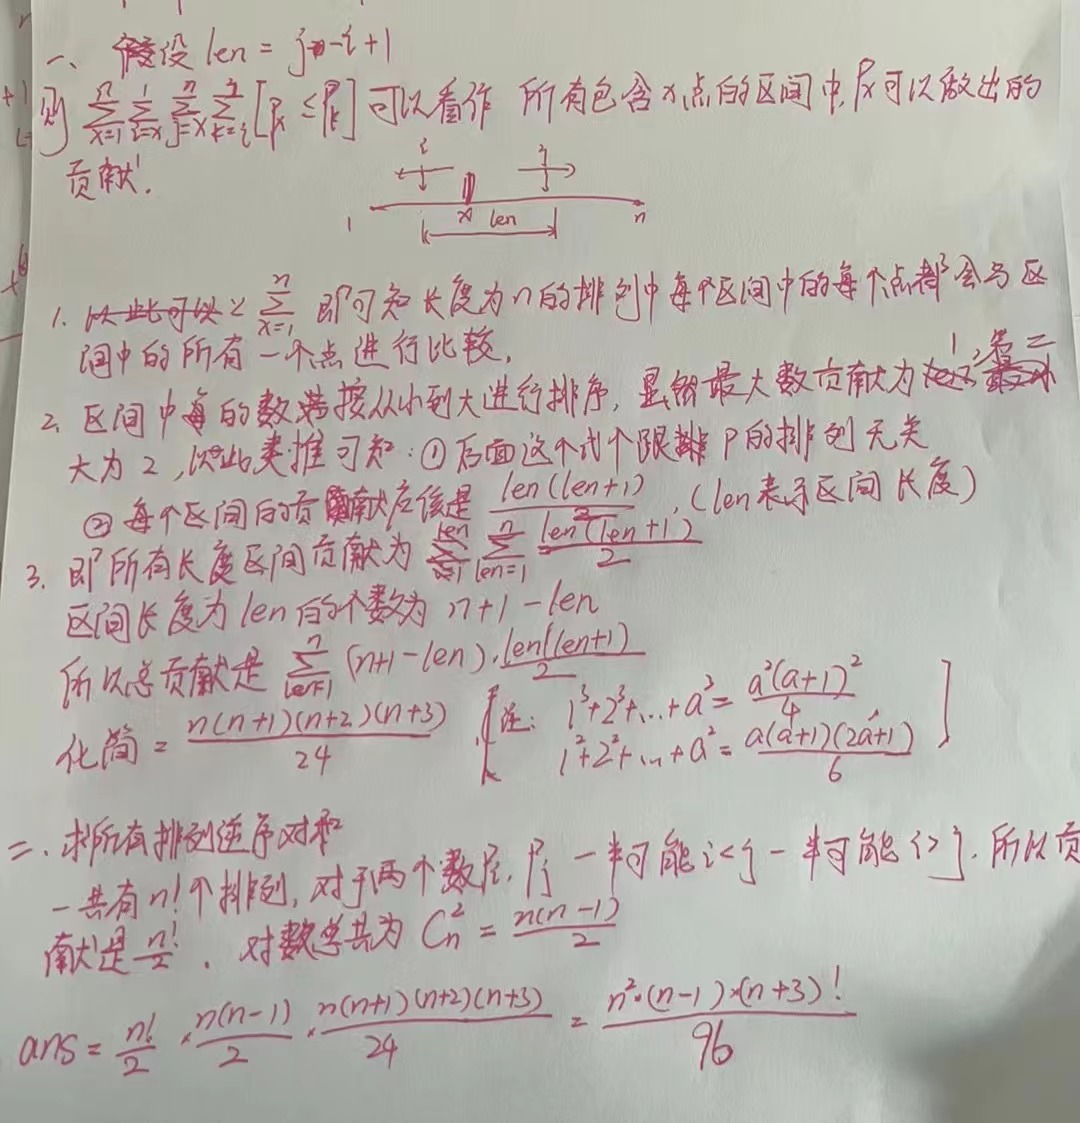 一、假设 len = j-i+1
则 ∑_{x=1}^{n} ∑_{i=x}^{1} ∑_{j=x}^{n} ∑_{k=i}^{j} [P_x ≤ P_k] 可以看作 所有包含x点的区间中,Px可以做出的
贡献.
i j
1 x len n
1. ∑_{x=1}^{n} 即可知长度为n的排列中每个区间中的每个点都会与区
间中的所有一个点进行比较.
2、区间中每的数按从小到大进行排序, 显然最大数贡献为1,第二
大为2,以此类推可知:①后面这个式个限跟P的排列无关
②每个区间的贡献应该是 len(len+1)/2 .(len表示区间长度)
3. 即所有长度区间贡献为 ∑_{len=1}^{n} len(len+1)/2
区间长度为len的个数为 n+1-len
所以总贡献是 ∑_{len=1}^{n} (n+1-len)·len(len+1)/2
化简 = n(n+1)(n+2)(n+3)/24 [注: 1³+2³+...+a³ = a²(a+1)²/4
1²+2²+...+a² = a(a+1)(2a+1)/6 ]
二、求所有排列逆序对和
一共有n!个排列, 对于两个数Pi, Pj 一半可能i<j 一半可能i>j. 所以贡
献是 n!/2 . 对数总共为 C_n^2 = n(n-1)/2
ans = n!/2 × n(n-1)/2 × n(n+1)(n+2)(n+3)/24 = n²·(n-1)×(n+3)!/96